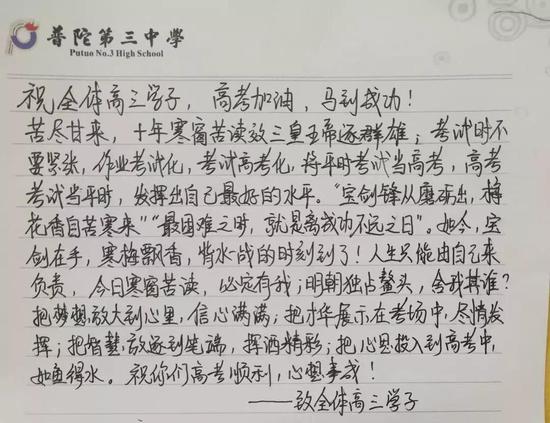 普陀第三中學
Putuo No.3 High School
祝全体高三学子，高考加油，马到成功！
苦尽甘来，十年寒窗苦读效三皇五帝逐群雄；考试时不
要紧张，作业考试化，考试高考化，将平时考试当高考，高考
考试当平时，发挥出自己最好的水平。“宝剑锋从磨砺出，梅
花香自苦寒来”“最困难之时，就是离成功不远之日”。如今，宝
剑在手，寒梅飘香，背水一战的时刻到了！人生只能由自己来
负责，今日寒窗苦读，必定有我；明朝独占鳌头，舍我其谁？
把梦想放大到心里，信心满满；把才华展示在考场中，尽情发
挥；把智慧放逐到笔端，挥洒精彩；把心思投入到高考中，
如鱼得水。祝你们高考顺利，心想事成！
——致全体高三学子